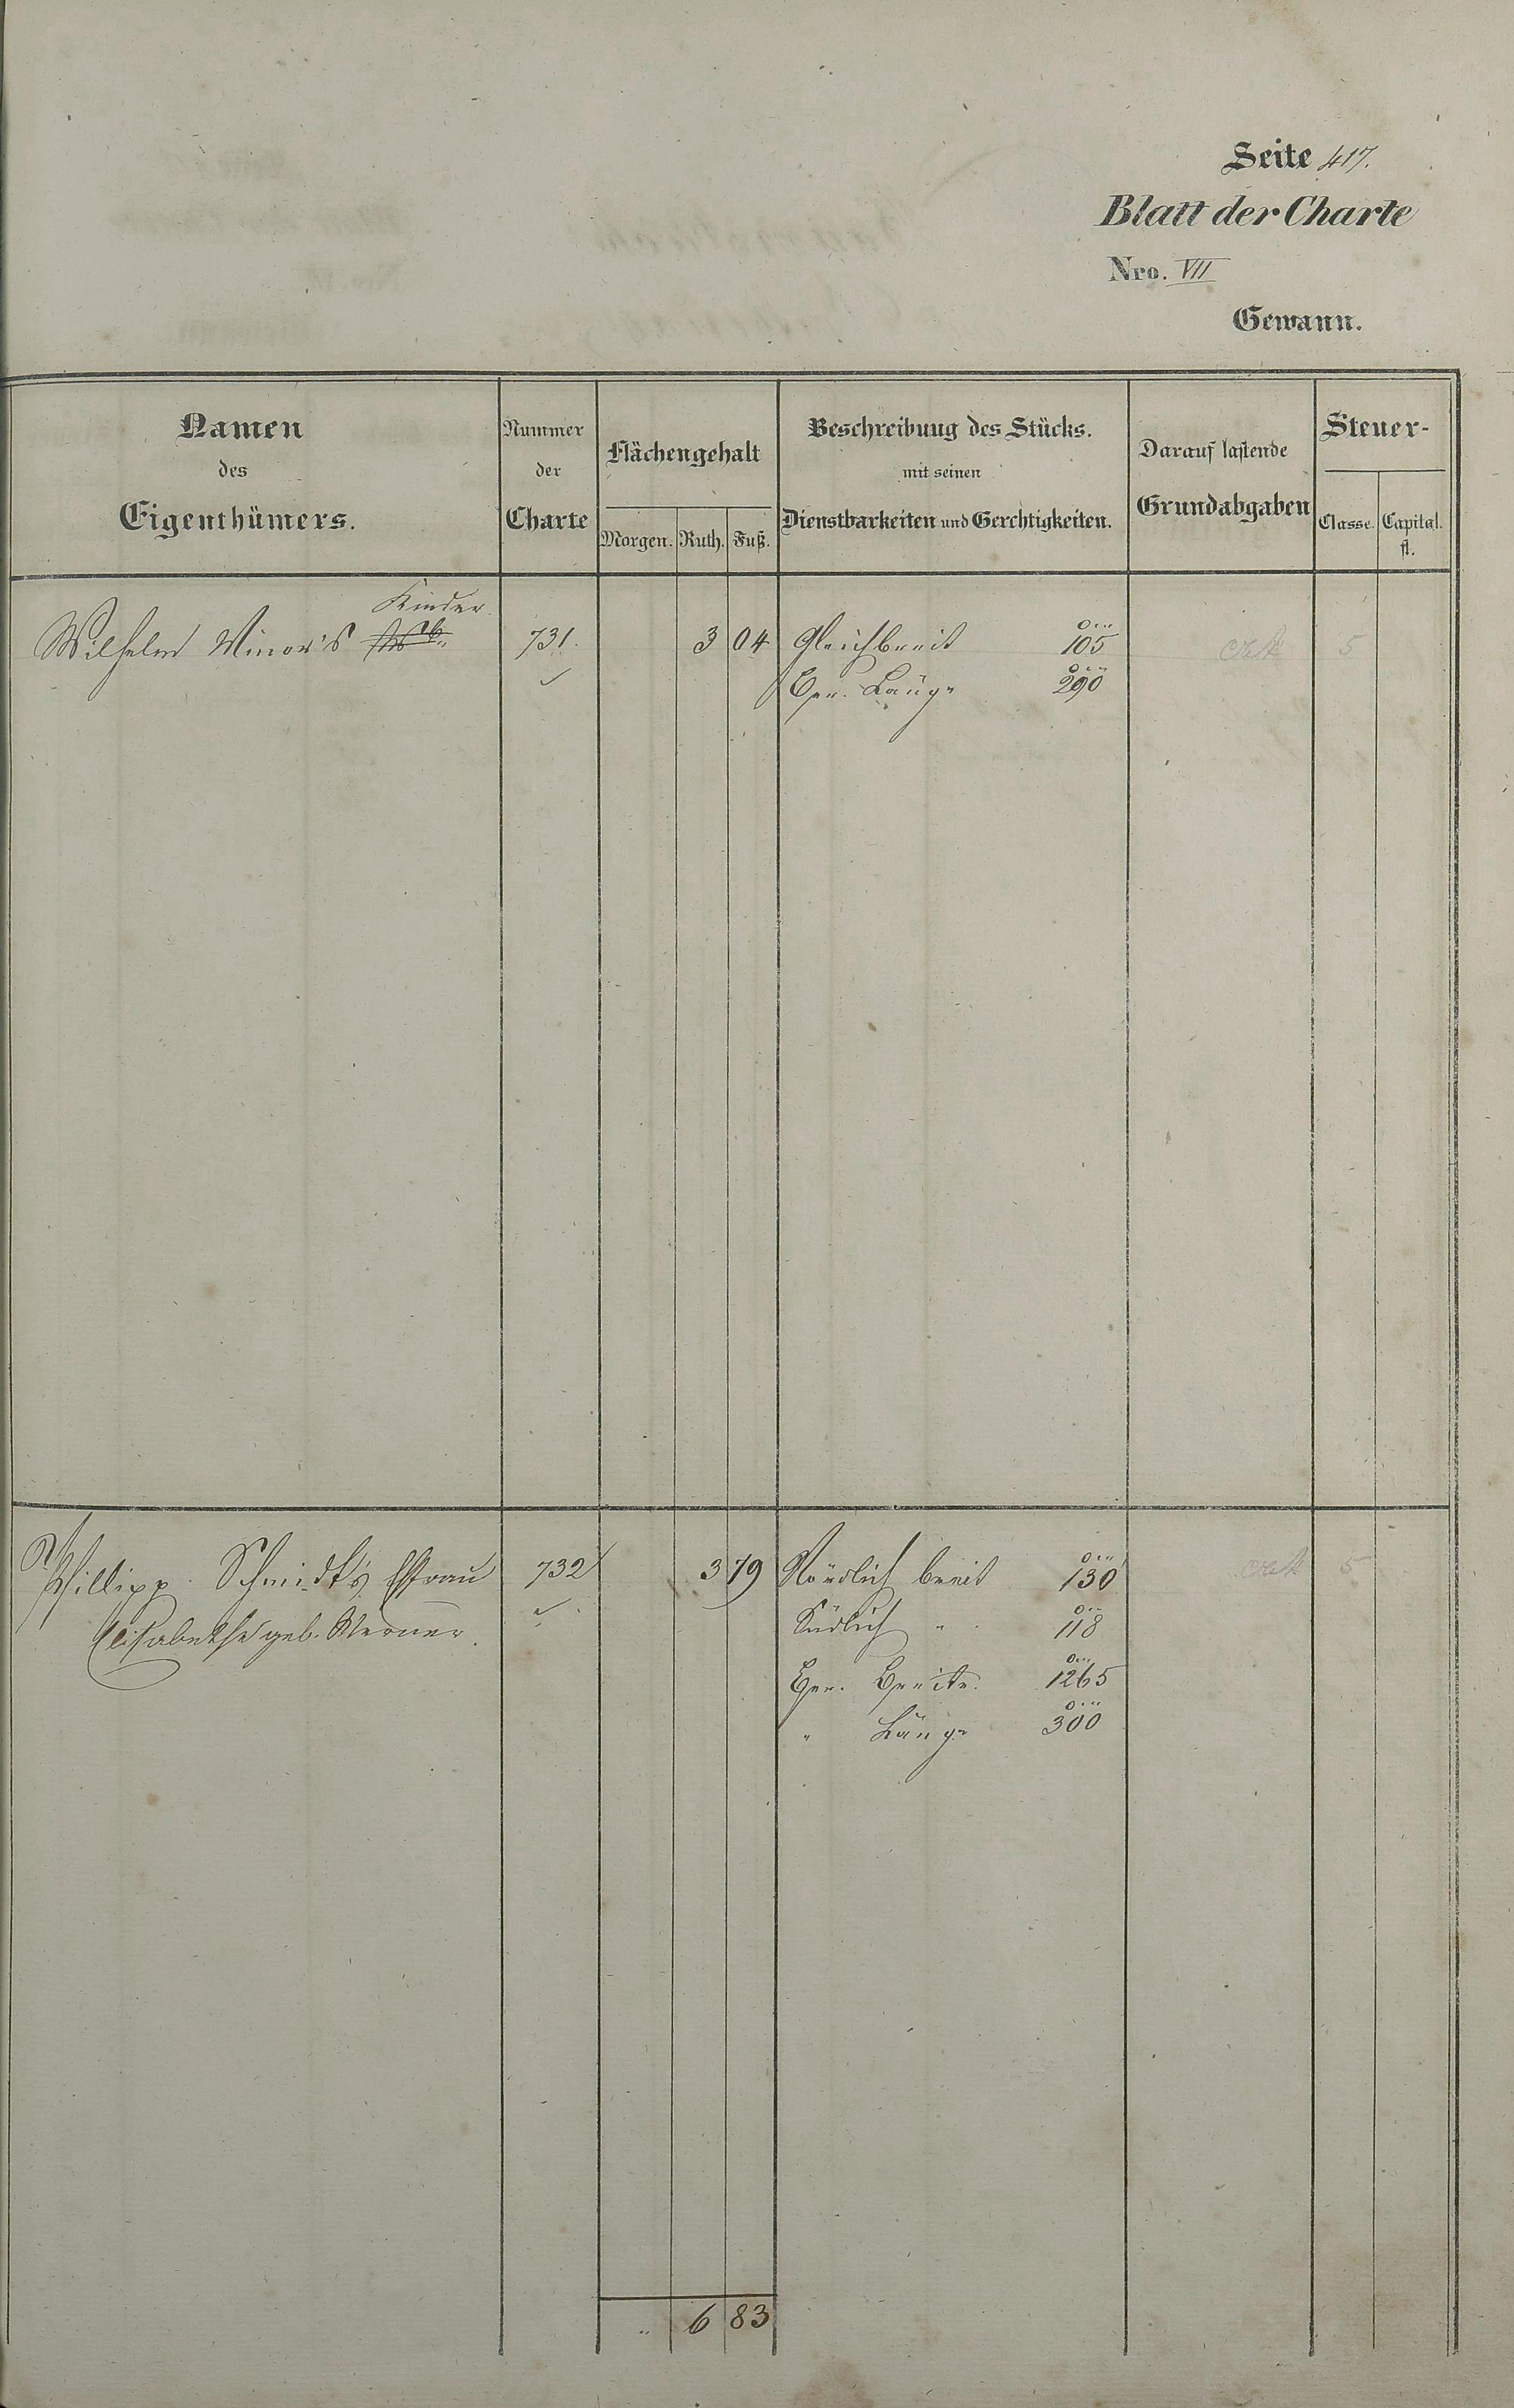 Seite 417.
Blatt der Charte
Nro. VII
Gewann.
Namen
des
Eigenthümers.
Nummer
der
Charte
Flächengehalt
Morgen. Ruth. Fuß.
Beschreibung des Stücks.
mit seinen
Dienstbarkeiten und Gerechtigkeiten.
Darauf lastende
Grundabgaben
Steuer-
Classe. Capital.
fl.
Kinder.
Wilhelm Minor's 731. 3 04 Gleichbreit 105 5
Ger. Länge 290
Phillipp Schmidt's Efrau 732 3 79 Nördlich breit 130 5
Elisabethe geb. Werner. Südlich " 118
Ger. Breite. 1265
" Länge 300
" 6 83